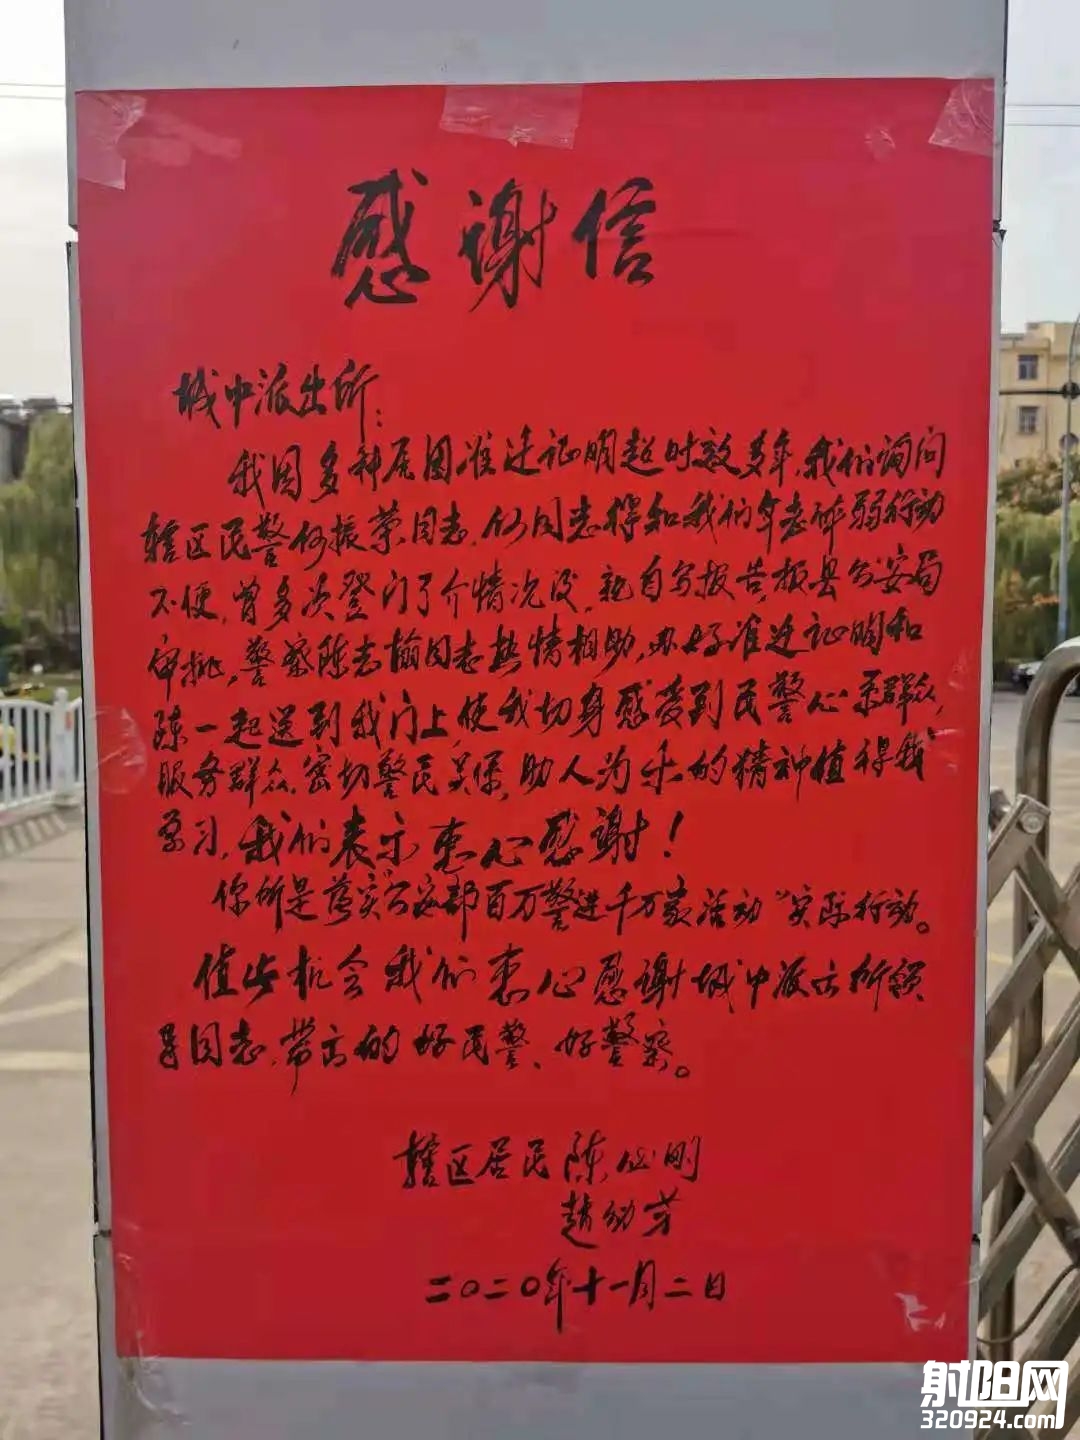 感谢信
城中派出所:
我因多种原因准迁证明超时效多年,我们询问
辖区民警何振荣同志,何同志得知我们年老体弱行动
不便,曾多次登门了介情况后,亲自写报告,报县公安局
审批,警察陈志榆同志热情相助,办好准迁证明和
陈一起送到我门上,使我切身感受到民警心系群众,
服务群众、密切警民关系,助人为乐的精神值得我
学习,我们表示衷心感谢!
你所是落实“公安部百万警进千万家活动”实际行动。
值此机会我们衷心感谢城中派出所领
导同志,带出的好民警、好警察。
辖区居民陈 刚
赵幼芽
二〇二〇年十一月二日
射阳网
320924.com